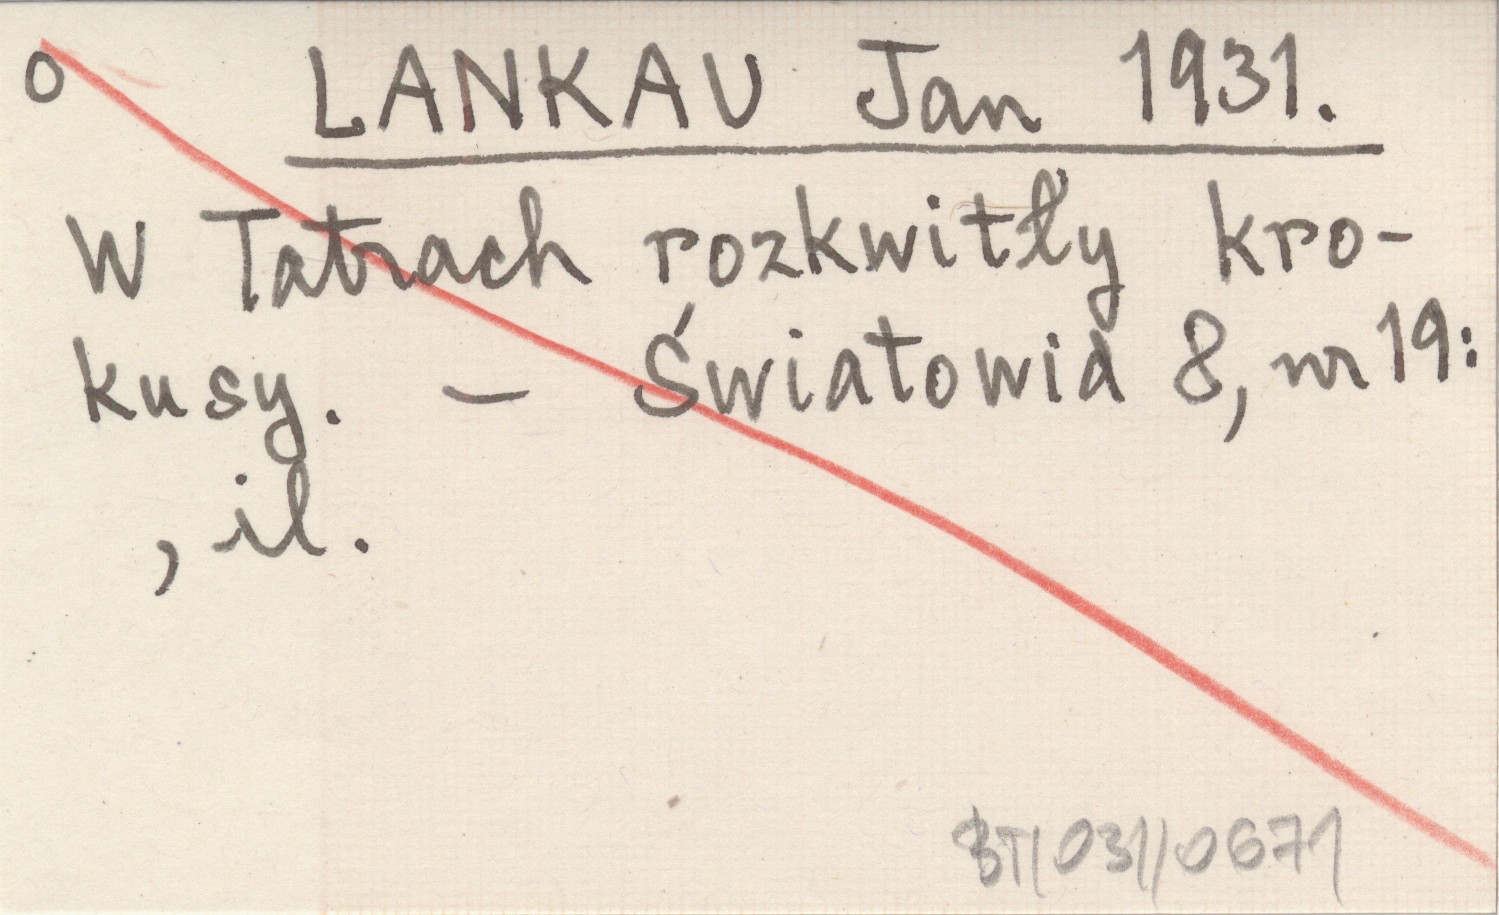 o LANKAU Jan 1931.
W Tatrach rozkwitły kro-
kusy. — Światowid 8, nr 19:
, il.
BT/031/0671